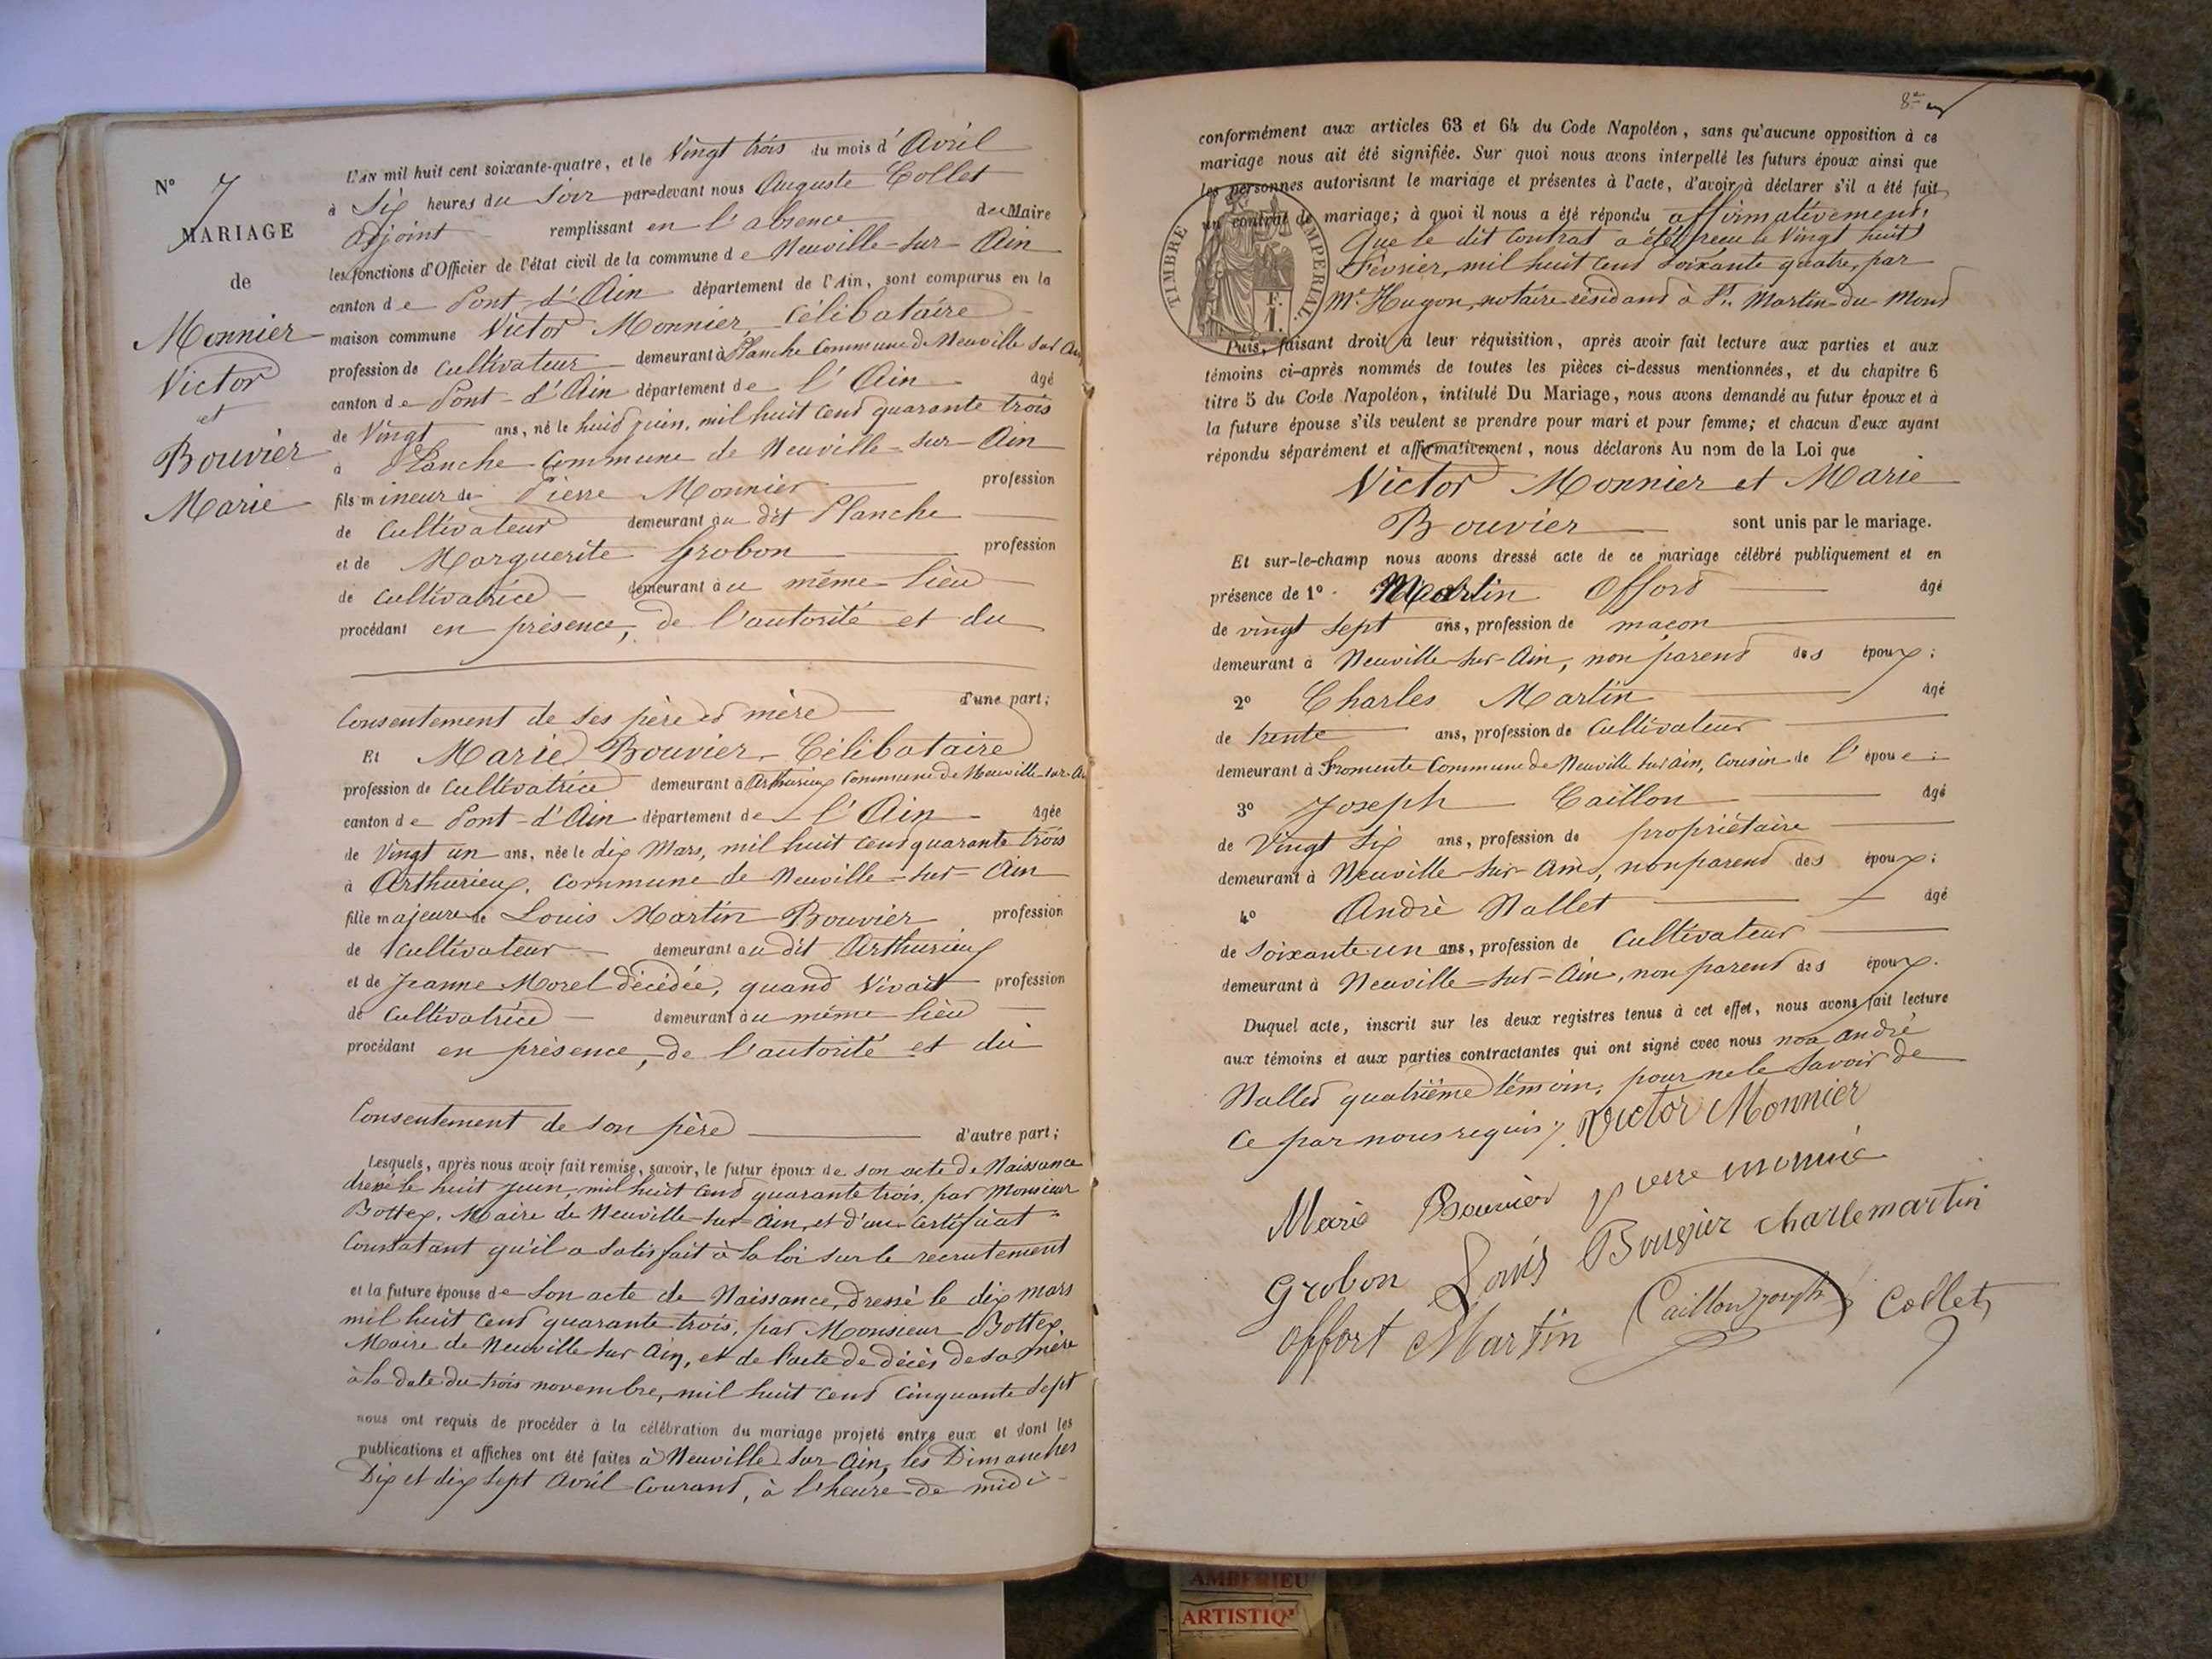 N° 7
MARIAGE
de
Monnier
Victor
et
Bouvier
Marie
L'AN mil huit cent soixante-quatre, et le Vingt trois du mois d'Avril
à Six heures du Soir par-devant nous Auguste Collet
adjoint remplissant en l'absence du Maire
les fonctions d'Officier de l'état civil de la commune de Neuville-sur-Ain
canton de Pont-d'Ain département de l'Ain, sont comparus en la
maison commune Victor Monnier, Célibataire
profession de Cultivateur demeurant à Planche Commune de Neuville sur Ain
canton de Pont-d'Ain département de l'Ain âgé
de Vingt ans, né le huit juin, mil huit cent quarante trois
à Planche Commune de Neuville-sur-Ain
fils mineur de Pierre Monnier profession
de Cultivateur demeurant au dit Planche
et de Marguerite Grobon profession
de Cultivatrice demeurant au même lieu
procédant en présence, de l'autorité et du
Consentement de ses père et mère d'une part;
Et Marie Bouvier, Célibataire
profession de Cultivatrice demeurant à Arthurieux Commune de Neuville-sur-Ain
canton de Pont-d'Ain département de l'Ain âgée
de Vingt un ans, née le dix Mars, mil huit cent quarante trois
à Arthurieux, Commune de Neuville-sur-Ain
fille majeure de Louis Martin Bouvier profession
de Cultivateur demeurant au dit Arthurieux
et de Jeanne Morel décédée, quand Vivait profession
de Cultivatrice demeurant au même lieu
procédant en présence, de l'autorité et du
Consentement de son père d'autre part;
Lesquels, après nous avoir fait remise, savoir, le futur époux de son acte de Naissance
dressé le huit juin, mil huit cent quarante trois, par Monsieur
Bottex, Maire de Neuville-sur-Ain, et d'un Certificat
Constatant qu'il a satisfait à la loi sur le recrutement
et la future épouse de son acte de Naissance, dressé le dix mars
mil huit cent quarante trois, par Monsieur Bottex,
Maire de Neuville sur Ain, et de l'acte de décès de sa mère
à la date du trois novembre, mil huit cent cinquante sept
nous ont requis de procéder à la célébration du mariage projeté entre eux et dont les
publications et affiches ont été faites à Neuville sur Ain, les Dimanches
Dix et dix sept Avril Courant, à l'heure de midi
8e
conformément aux articles 63 et 64 du Code Napoléon, sans qu'aucune opposition à ce
mariage nous ait été signifiée. Sur quoi nous avons interpellé les futurs époux ainsi que
les personnes autorisant le mariage et présentes à l'acte, d'avoir à déclarer s'il a été fait
un contrat de mariage; à quoi il nous a été répondu affirmativement,
Que le dit Contrat a été reçu le Vingt huit
Février, mil huit cent soixante quatre, par
Me Hugon, notaire résidant à St Martin-du-Mont
TIMBRE IMPERIAL
F.
1.
Puis, faisant droit à leur réquisition, après avoir fait lecture aux parties et aux
témoins ci-après nommés de toutes les pièces ci-dessus mentionnées, et du chapitre 6
titre 5 du Code Napoléon, intitulé Du Mariage, nous avons demandé au futur époux et à
la future épouse s'ils veulent se prendre pour mari et pour femme; et chacun d'eux ayant
répondu séparément et affirmativement, nous déclarons Au nom de la Loi que
Victor Monnier et Marie
Bouvier sont unis par le mariage.
Et sur-le-champ nous avons dressé acte de ce mariage célébré publiquement et en
présence de 1° Martin Offort âgé
de vingt sept ans, profession de maçon
demeurant à Neuville-sur-Ain, non parent des époux;
2° Charles Martin âgé
de trente ans, profession de Cultivateur
demeurant à Fromente Commune de Neuville sur ain, Cousin de l'épou e;
3° Joseph Caillon âgé
de Vingt Six ans, profession de propriétaire
demeurant à Neuville-sur-Ain, non parent des époux;
4° André Nallet âgé
de Soixante un ans, profession de Cultivateur
demeurant à Neuville-sur-Ain, non parent des époux.
Duquel acte, inscrit sur les deux registres tenus à cet effet, nous avons fait lecture
aux témoins et aux parties contractantes qui ont signé avec nous non andré
Nallet quatrième témoin, pour ne le savoir de
Ce par nous requis. Victor Monnier
Marie Bouvier pierre monnié
Grobon Louis Bouvier charlemartin
offort Martin Caillon joseph Collet
AMBERIEU
ARTISTIQ